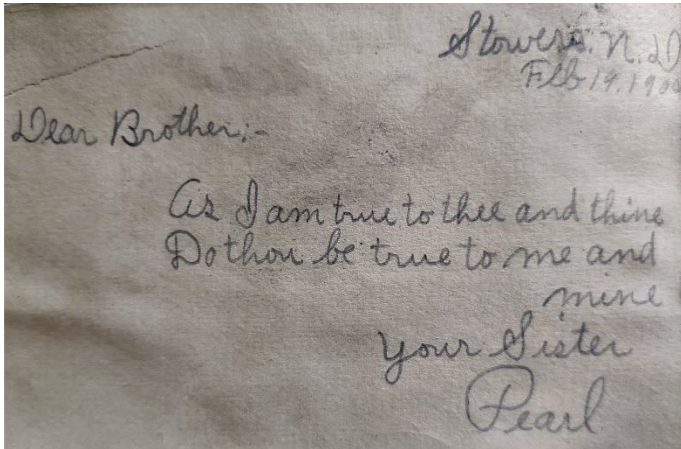 Stowers. N. D
Feb 19. 190
Dear Brother;-
As I am true to thee and thine
Do thou be true to me and
mine
Your Sister
Pearl